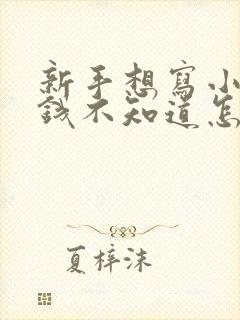 新手想寫小
錢不知道怎
夏梓沫